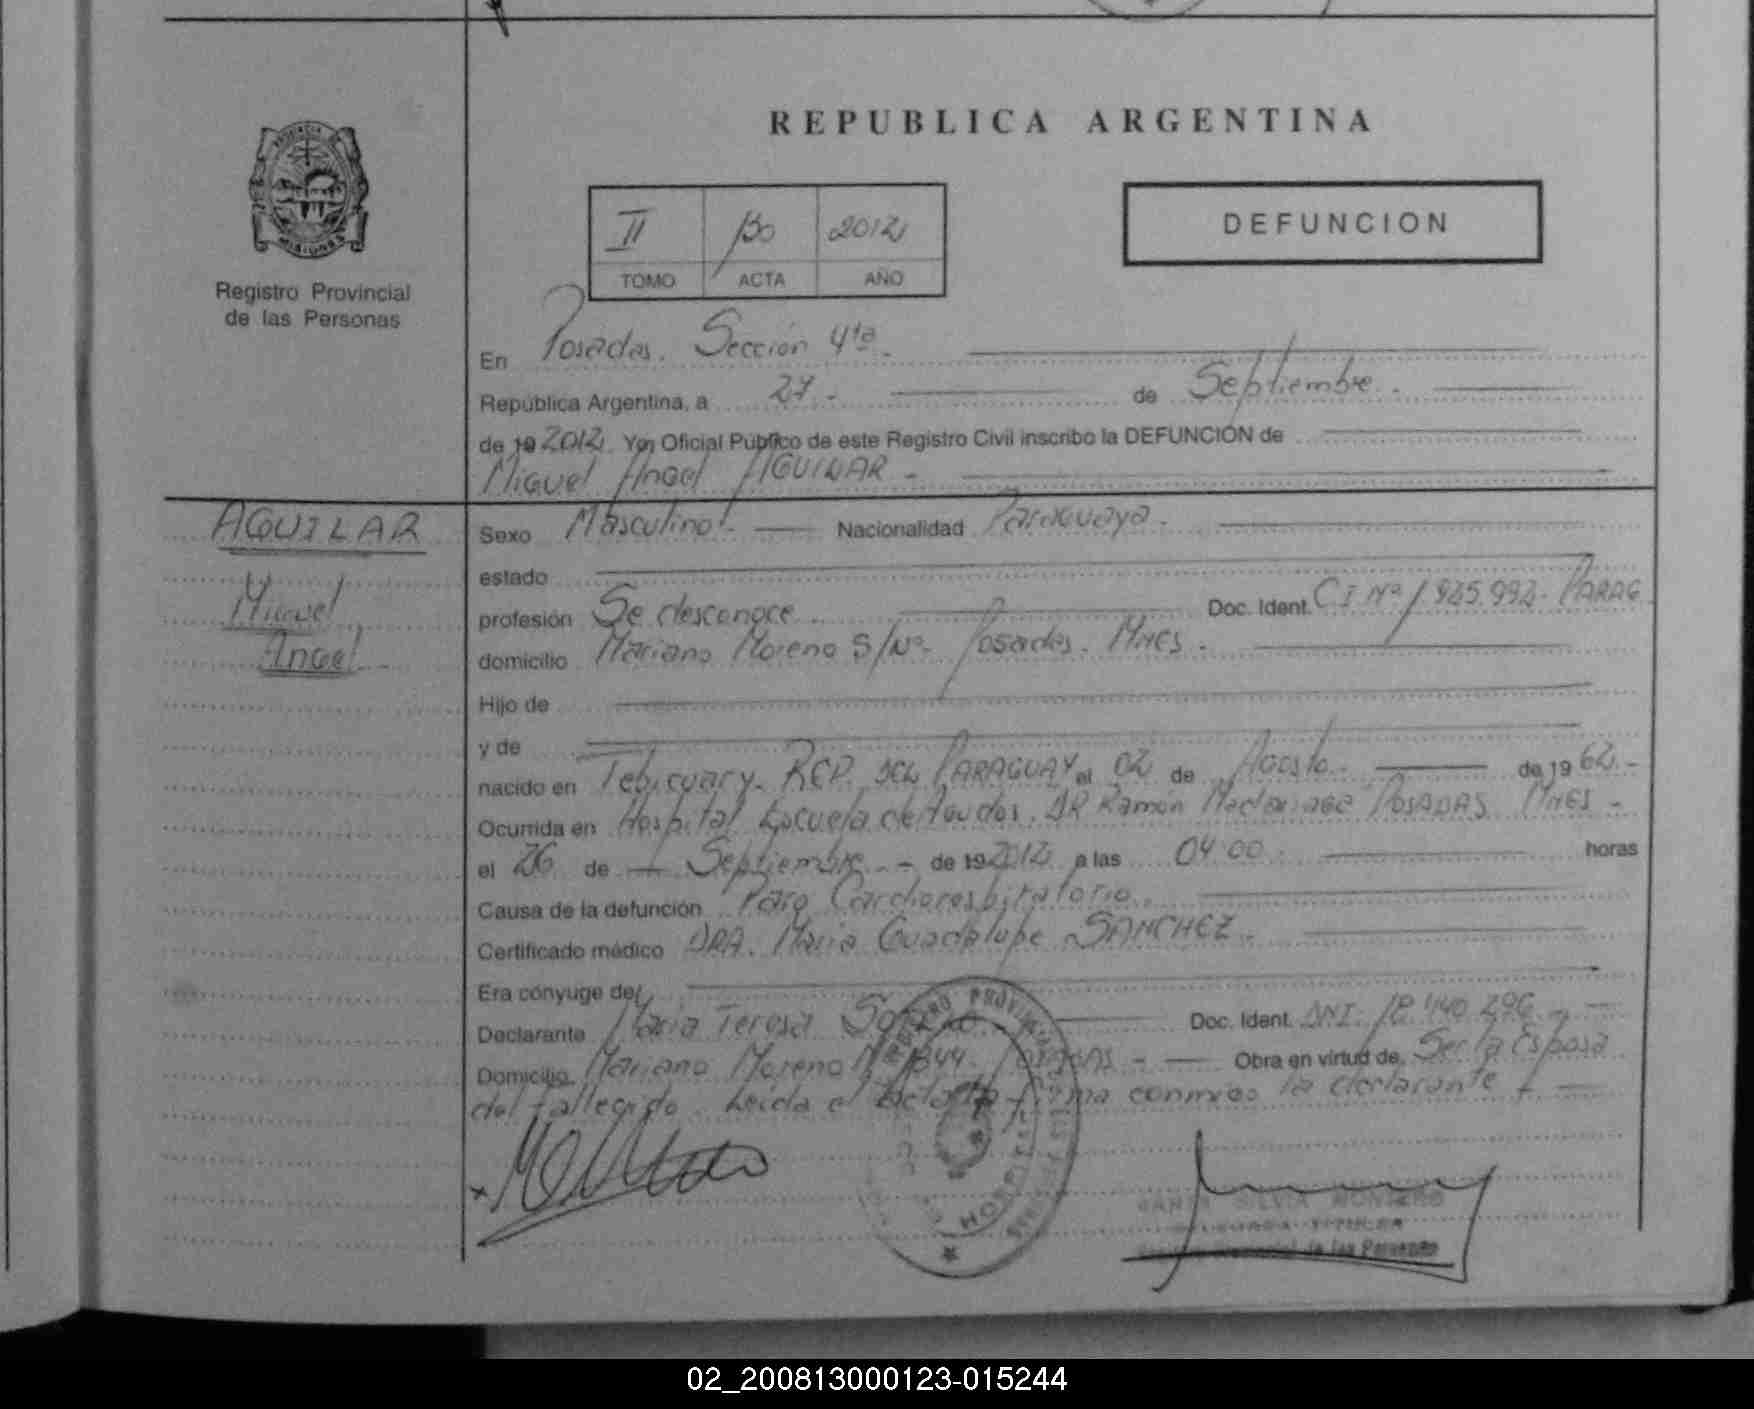 REPUBLICA ARGENTINA
Registro Provincial
de las Personas
II 130 2012
TOMO ACTA AÑO
DEFUNCION
En Posadas. Sección 4ta.
República Argentina, a 27 - de Septiembre.
de 19 2012. Yo, Oficial Público de este Registro Civil inscribo la DEFUNCION de
Miguel Angel AGUILAR -
AGUILAR
Miguel
Angel
Sexo Masculino. - Nacionalidad Paraguaya.
estado
profesión Se desconoce. Doc. Ident. C.I Nº 1.925.992- PARAG
domicilio Mariano Moreno S/Nº- Posadas. MNES.
Hijo de
y de
nacido en Tebicuary. REP. DEL PARAGUAY el 02 de Agosto. de 19 62.-
Ocurrida en Hospital Escuela de Agudos. DR Ramón Madariaga POSADAS MNES -
el 26 de Septiembre. - de 19 2012 a las 04:00. horas
Causa de la defunción Paro Cardiorespiratorio.
Certificado médico DRA. Maria Guadalupe SANCHEZ.
Era cónyuge de
Declarante Maria Teresa Doc. Ident. DNI. 18.440.296 -
Domicilio Mariano Moreno Nº 1344. Posadas - Obra en virtud de Ser la Esposa
del fallecido. Leida el Acta firma conmigo la declarante
REGISTRO PROVINCIAL
SILVIA MONTERO
TITULAR
de las Personas
02_200813000123-015244